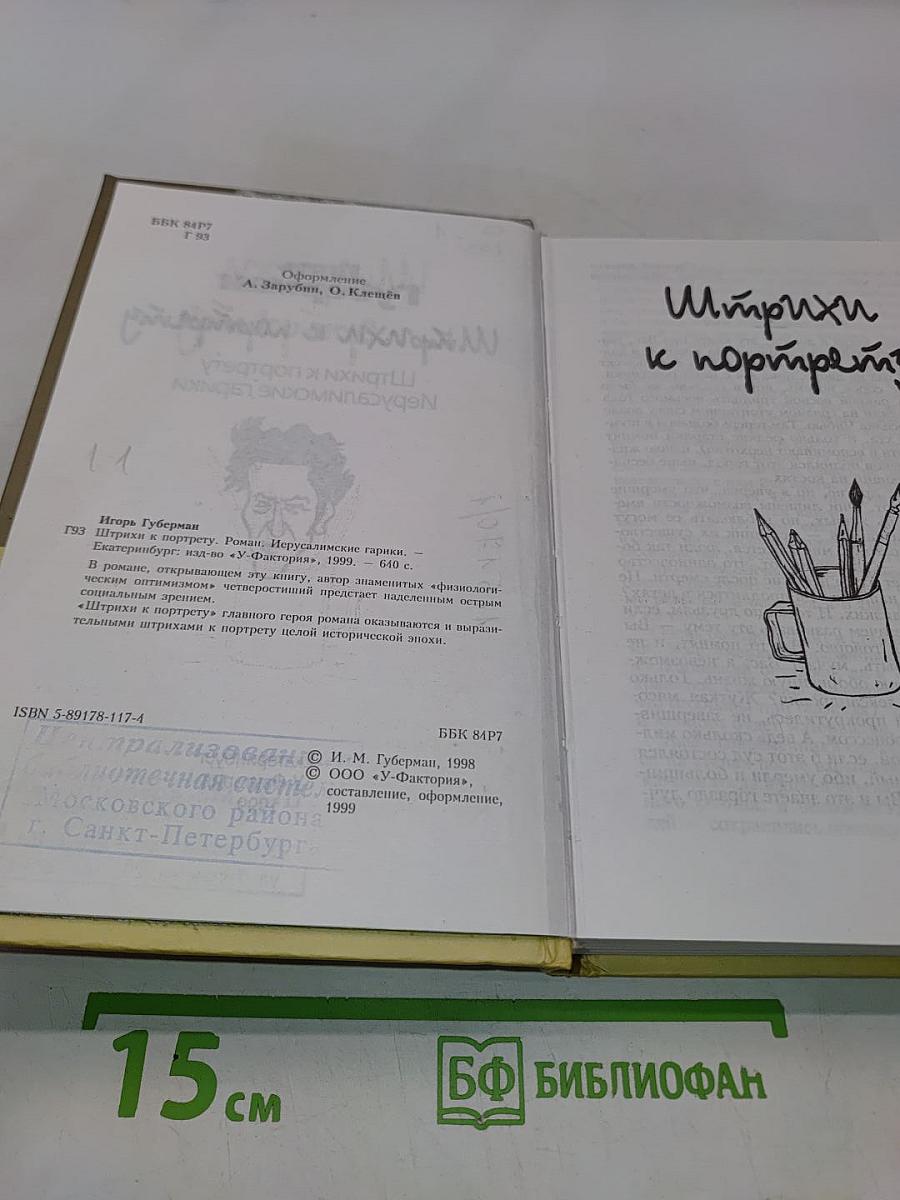 ББК 84Р7
Г 93
Оформление
А. Зарубин, О. Клещёв
Игорь Губерман
Г93 Штрихи к портрету. Роман. Иерусалимские гарики. —
Екатеринбург: изд-во «У-Фактория», 1999. — 640 с.
В романе, открывающем эту книгу, автор знаменитых «физиологи-
ческим оптимизмом» четверостиший предстает наделенным острым
социальным зрением.
«Штрихи к портрету» главного героя романа оказываются и вырази-
тельными штрихами к портрету целой исторической эпохи.
ISBN 5-89178-117-4
ББК 84Р7
© И. М. Губерман, 1998
© ООО «У-Фактория»,
составление, оформление,
1999
Централизован
библиотечная систе
Московского района
г. Санкт-Петербург
Штрихи
к портрету
15 см
БФ БИБЛИОФАН